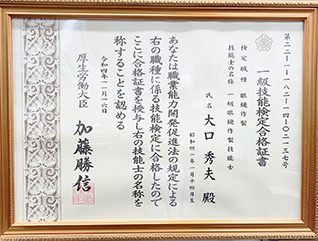 第二二‐一‐一八二‐一四‐〇二一三七号
一級技能検定合格証書
検定職種 眼鏡作製
技能士の名称 一級眼鏡作製技能士
氏名 大口 秀夫 殿
昭和四一年一月十四日生
あなたは職業能力開発促進法の規定による
右の職種に係る技能検定に合格したので
ここに合格証書を授与し右の技能士の名称を
称することを認める
令和四年一一月一六日
厚生労働大臣 加藤勝信